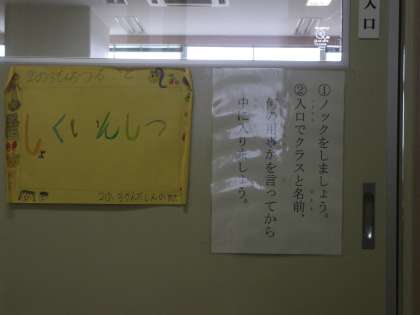 入口
しょくいんしつ
①ノックをしましょう。
②入口でクラスと名前、
何の用事かを言ってから
中に入りましょう。